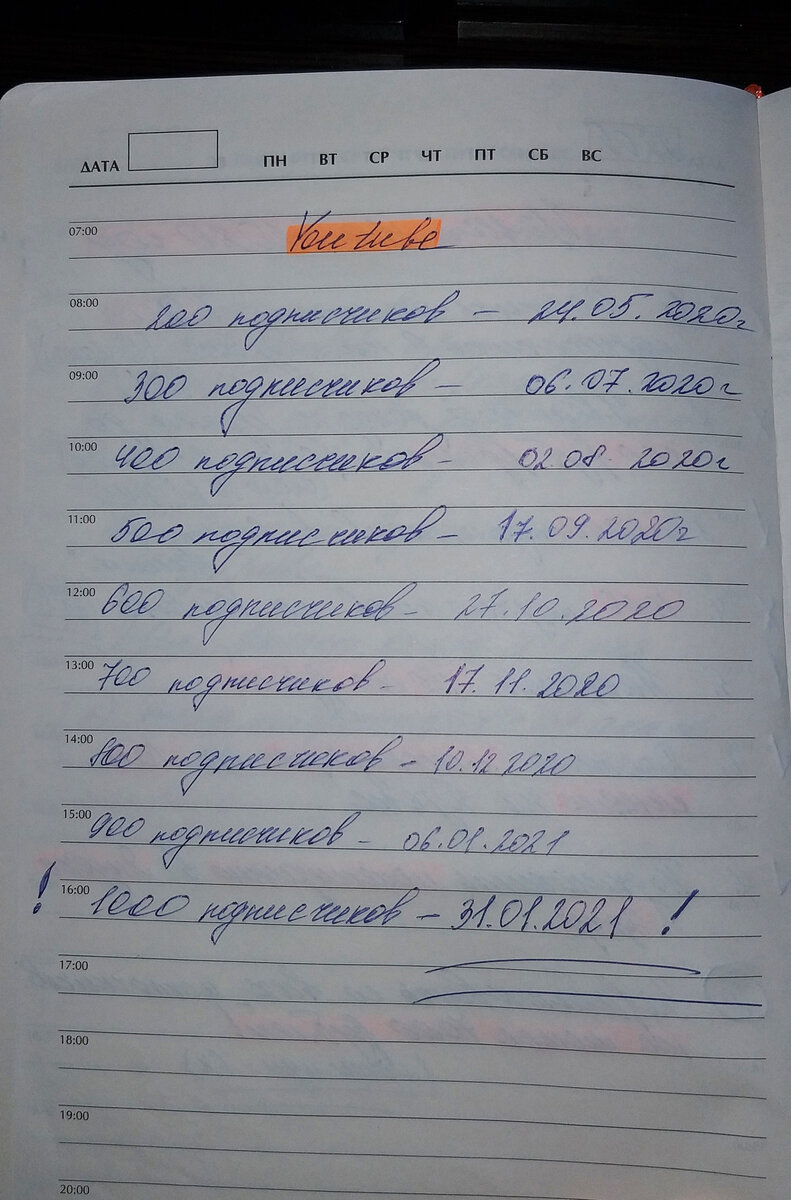 ДАТА ПН ВТ СР ЧТ ПТ СБ ВС
07:00 Youtube
08:00 200 подписчиков – 24.05.2020г
09:00 300 подписчиков – 06.07.2020г
10:00 400 подписчиков – 02.08.2020г
11:00 500 подписчиков – 17.09.2020г
12:00 600 подписчиков – 27.10.2020
13:00 700 подписчиков – 17.11.2020
14:00 800 подписчиков – 10.12.2020
15:00 900 подписчиков – 06.01.2021
16:00 ! 1000 подписчиков – 31.01.2021 !
17:00
18:00
19:00
20:00